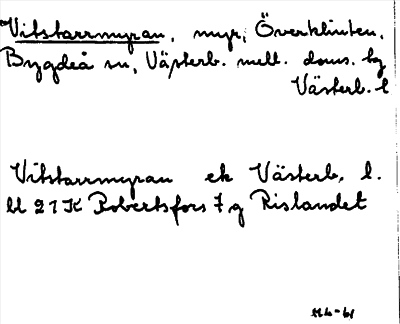 Vitstarrmyran, myr, Överklinten,
Bygdeå sn, Västerb. mell. doms. bg
Västerb. l
Vitstarrmyran ek Västerb. l.
21K Robertsfors 7 g Rislandet